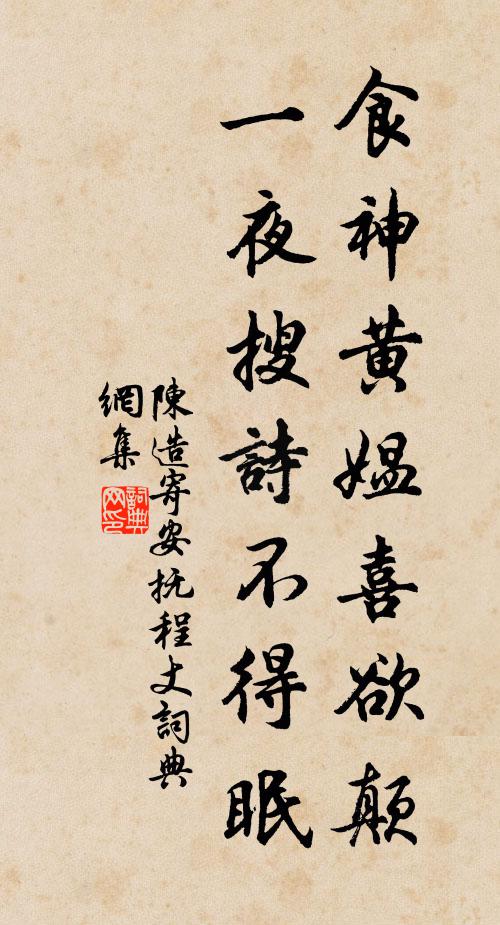 食神黄媪喜欲颠
一夜搜詩不得眠
陳造寄安抚程丈詞典
網集
詞典网印